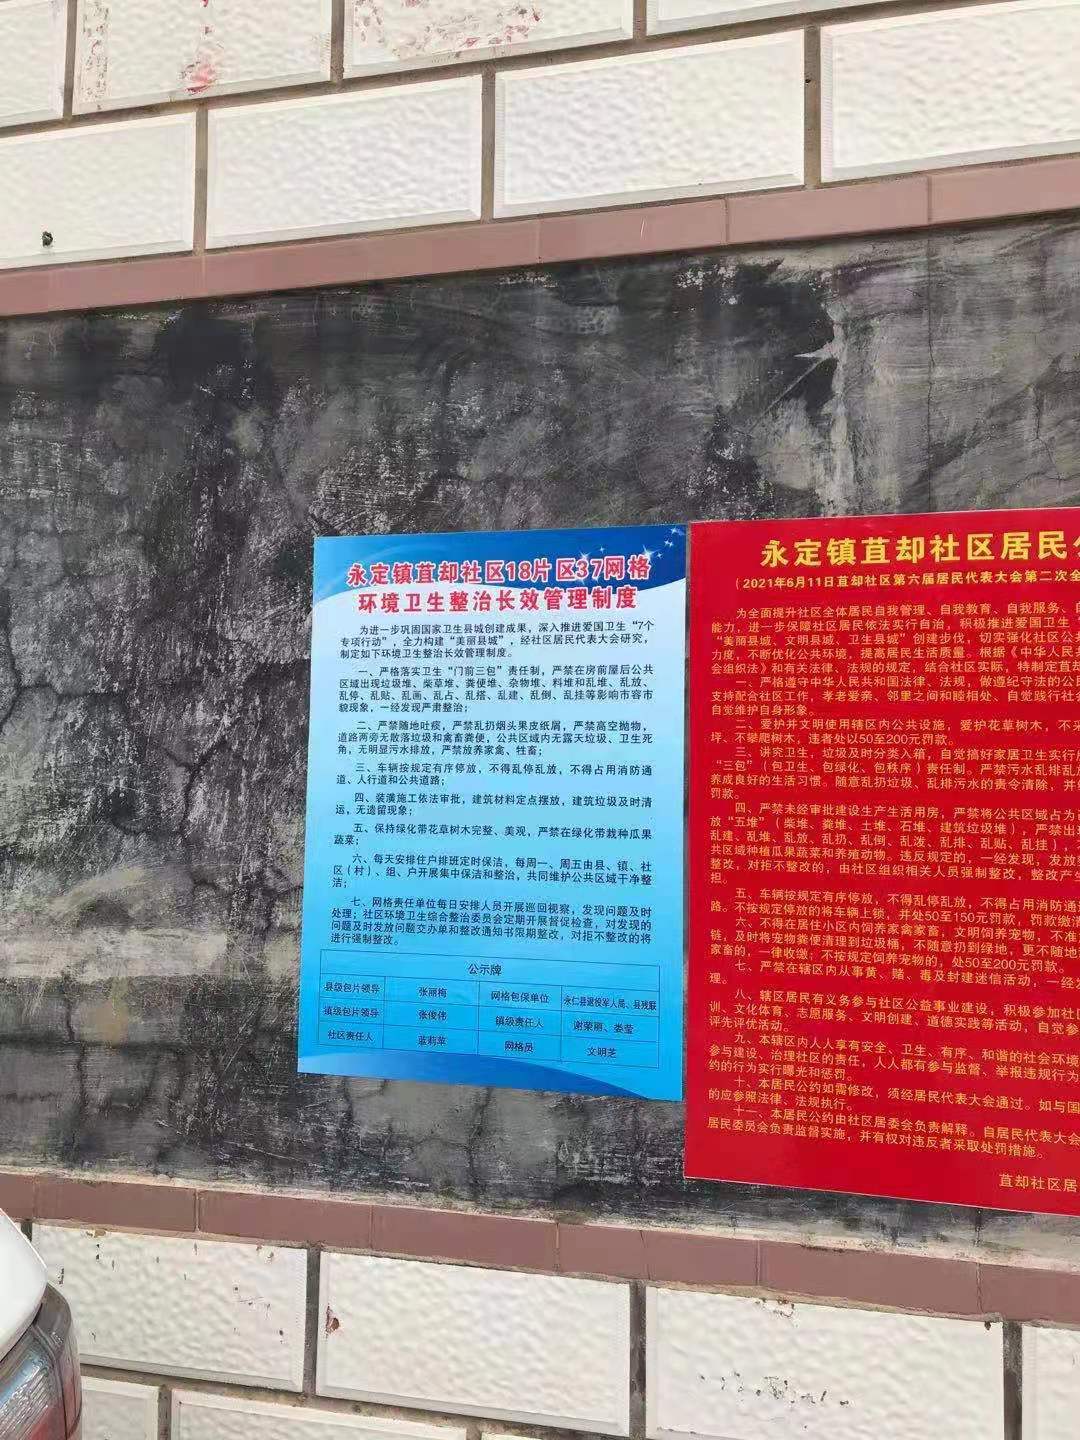 永定镇苴却社区18片区37网格
环境卫生整治长效管理制度
为进一步巩固国家卫生县城创建成果，深入推进爱国卫生“7个
专项行动”，全力构建“美丽县城”，经社区居民代表大会研究，
制定如下环境卫生整治长效管理制度。
一、严格落实卫生“门前三包”责任制，严禁在房前屋后公共
区域出现垃圾堆、柴草堆、粪便堆、杂物堆、料堆和乱堆、乱放、
乱停、乱贴、乱画、乱占、乱搭、乱建、乱倒、乱挂等影响市容市
貌现象，一经发现严肃整治；
二、严禁随地吐痰，严禁乱扔烟头果皮纸屑，严禁高空抛物，
道路两旁无散落垃圾和禽畜粪便，公共区域内无露天垃圾、卫生死
角，无明显污水排放，严禁放养家禽、牲畜；
三、车辆按规定有序停放，不得乱停乱放，不得占用消防通
道、人行道和公共道路；
四、装潢施工依法审批，建筑材料定点摆放，建筑垃圾及时清
运，无遗留现象；
五、保持绿化带花草树木完整、美观，严禁在绿化带栽种瓜果
蔬菜；
六、每天安排住户排班定时保洁，每周一、周五由县、镇、社
区（村）、组、户开展集中保洁和整治，共同维护公共区域干净整
洁；
七、网格责任单位每日安排人员开展巡回视察，发现问题及时
处理；社区环境卫生综合整治委员会定期开展督促检查，对发现的
问题及时发放问题交办单和整改通知书限期整改，对拒不整改的将
进行强制整改。
公示牌
县级包片领导 张丽梅 网格包保单位 永仁县退役军人局、县残联
镇级包片领导 张俊伟 镇级责任人 谢荣丽、娄莹
社区责任人 蓝莉苹 网格员 文明芝
永定镇苴却社区居民
（2021年6月11日苴却社区第六届居民代表大会第二次全
为全面提升社区全体居民自我管理、自我教育、自我服务、
能力，进一步保障社区居民依法实行自治，积极推进爱国卫生
“美丽县城、文明县城、卫生县城”创建步伐，切实强化社区公
力度，不断优化公共环境，提高居民生活质量。根据《中华人民共
会组织法》和有关法律、法规的规定，结合社区实际，特制定苴却
一、严格遵守中华人民共和国法律、法规，做遵纪守法的公民
支持配合社区工作，孝老爱亲、邻里之间和睦相处、自觉践行社会
自觉维护自身形象。
二、爱护并文明使用辖区内公共设施，爱护花草树木，不采
坪、不攀爬树木，违者处以50至200元罚款。
三、讲究卫生，垃圾及时分类入箱，自觉搞好家居卫生实行
“三包”（包卫生、包绿化、包秩序）责任制。严禁污水乱排乱
养成良好的生活习惯。随意乱扔垃圾、乱排污水的责令清除，并
罚款。
四、严禁未经审批建设生产生活用房，严禁将公共区域占为
放“五堆”（柴堆、粪堆、土堆、石堆、建筑垃圾堆），严禁出
乱建、乱堆、乱放、乱扔、乱倒、乱泼、乱排、乱贴、乱挂），
共区域种植瓜果蔬菜和养殖动物。违反规定的，一经发现，发放
整改，对拒不整改的，由社区组织相关人员强制整改，整改产生
担。
五、车辆按规定有序停放，不得乱停乱放，不得占用消防通
路。不按规定停放的将车辆上锁，并处50至150元罚款，罚款缴清
六、不得在居住小区内饲养家禽家畜，文明饲养宠物，不准
链，及时将宠物粪便清理到垃圾桶，不随意扔到绿地，更不随地
家畜的，一律收缴；不按规定饲养宠物的，处50至200元罚款。
七、严禁在辖区内从事黄、赌、毒及封建迷信活动，一经发
理。
八、辖区居民有义务参与社区公益事业建设，积极参加社区
训、文化体育、志愿服务、文明创建、道德实践等活动，自觉参
评先评优活动。
九、本辖区内人人享有安全、卫生、有序、和谐的社会环境
参与建设、治理社区的责任，人人都有参与监督、举报违规行为
约的行为实行曝光和惩罚。
十、本居民公约如需修改，须经居民代表大会通过。如与国
的应参照法律、法规执行。
十一、本居民公约由社区居委会负责解释。自居民代表大会
居民委员会负责监督实施，并有权对违反者采取处罚措施。
苴却社区居